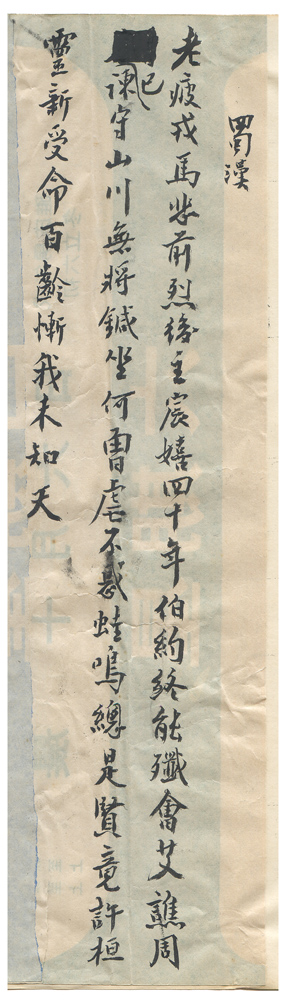 蜀漢
老疲戎馬悲前烈後主宸嬉四十年伯約終能殲會艾譙周
已諫守山川無將鍼坐何雷虐不惑蛙鳴總是賢竟許桓
靈新受命百齡慚我未知天